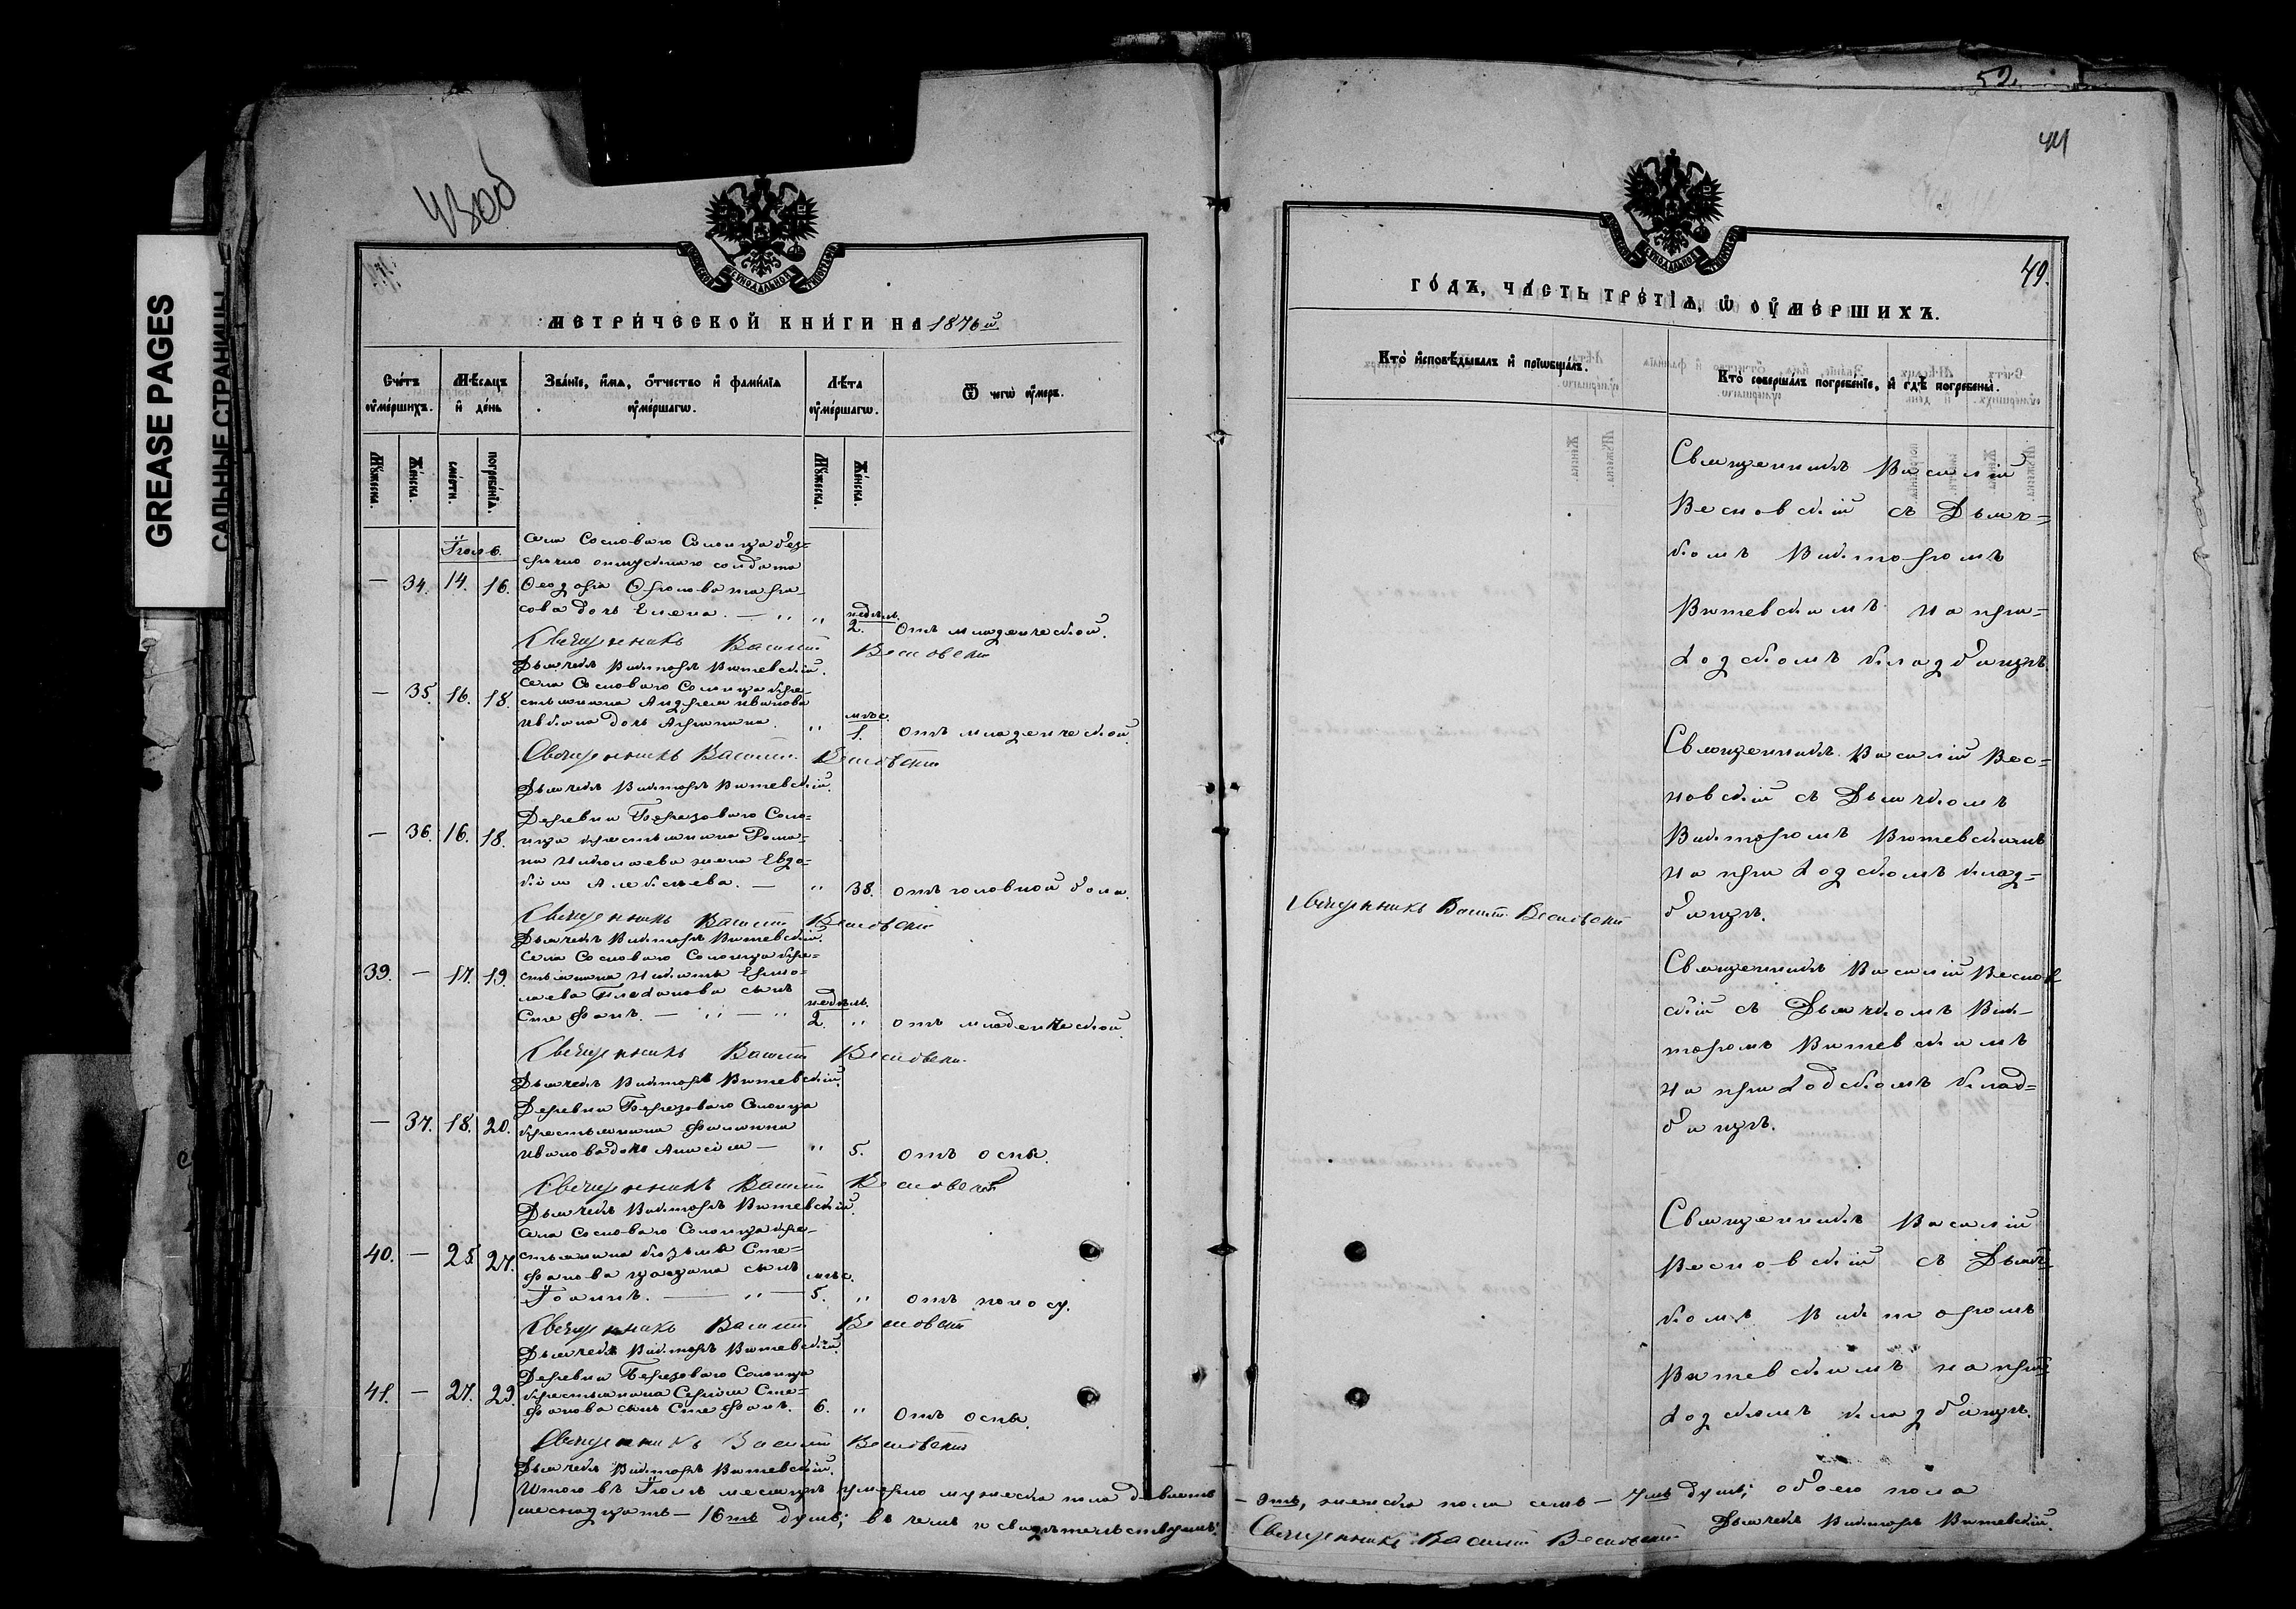 GREASE PAGES
САЛЬНЫЕ СТРАНИЦЫ
43об
МЕТРИЧЕСКОЙ КНИГИ НА 1876й
Счетъ умершихъ.
Мѣсяцъ и день
Званіе, имя, отчество и фамилія умершаго.
Лѣта умершаго.
Ѿ чего умеръ.
Мужеска.
Женска.
смерти.
погребенія.
Мужеска.
Женска.
Іюль.
Села Сосноваго Солонца без=
срочно отпускнаго солдата
— 34. 14. 16. Ѳеодора
сова дочь Елена. — „ „ недѣль 2. Отъ младенческой.
Священникъ Василій Весновскій
Дьячекъ Викторъ Витевскій.
Села Сосноваго Солонца кре=
— 35. 16. 18. стьянина Андрея Иванова
дочь „ мѣс. 1. Отъ младенческой.
Священникъ Василій Весновскій
Дьячекъ Викторъ Витевскій.
Деревни Березоваго Соло=
— 36. 16. 18. нца крестьянина Рома=
на Николаева жена Евдо=
кія Алексѣева. — „ 38. отъ головной боли.
Священникъ Василій Весновскій
Дьячекъ Викторъ Витевскій.
Села Сосноваго Солонца кре=
39. — 17. 19. стьянина Никиты Ермо=
лаева Плеханова сынъ
Стефанъ. — „ — „ недѣль. 2. „ отъ младенческой
Священникъ Василій Весновскій
Дьячекъ Викторъ Витевскій.
Деревни Березоваго Солонца
— 37. 18. 20. крестьянина Филиппа
Иванова дочь Анисія — „ 5. отъ оспы.
Священникъ Василій Весновскій
Дьячекъ Викторъ Витевскій.
Села Сосноваго Солонца кре=
40. — 25. 27. стьянина Козьмы Сте=
фанова сынъ
Іоаннъ. — „ — мѣс. 5. „ отъ поносу.
Священникъ Василій Весновскій
Дьячекъ Викторъ Витевскій.
Деревни Березоваго Солонца
41. — 27. 29. крестьянина Сергія Сте=
фанова сынъ Стефанъ. 6. „ Отъ оспы.
Священникъ Василій Весновскій
Дьячекъ Викторъ Витевскій.
Итого въ Іюлѣ месяцѣ умерло мужеска пола девять
— 9ть, женска пола семь — 7мь душъ; обоего пола
шеснадцать — 16ть душъ; въ чемъ и свидѣтельствуемъ:
Священникъ Василій Весновскій
Дьячекъ Викторъ Витевскій.
52
44
49.
ГОДЪ, ЧАСТЬ ТРЕТІЯ, Ѡ УМЕРШИХЪ.
Кто исповѣдывалъ и пріобщалъ.
Кто совершалъ погребеніе, и гдѣ погребены.
Священникъ Василій Весновскій
Священникъ Василій
Весновскій съ Дьяч=
комъ Викторомъ
Витевскимъ на при=
ходскомъ кладбищѣ.
Священникъ Василій Вес=
новскій съ Дьячкомъ
Викторомъ Витевскимъ
на приходскомъ клад=
бищѣ.
Священникъ Василій Веснов
скій съ Дьячкомъ Вик=
торомъ Витевскимъ
на приходскомъ клад=
бищѣ.
Священникъ Василій
Весновскій съ Дьяч=
комъ Викторомъ
Витевскимъ на при=
ходскомъ кладбищѣ.